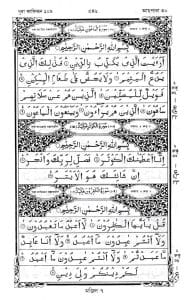 সূরা কাফিরুন ১০৯
আমপারা ৩০
بِسْمِ اللّٰهِ الرَّحْمٰنِ الرَّحِيْمِ
اَرَءَيْتَ الَّذِيْ يُكَذِّبُ بِالدِّيْنِ فَذٰلِكَ الَّذِيْ
يَدُعُّ الْيَتِيْمَ وَلَا يَحُضُّ عَلٰى طَعَامِ الْمِسْكِيْنِ
فَوَيْلٌ لِّلْمُصَلِّيْنَ الَّذِيْنَ هُمْ عَنْ صَلَاتِهِمْ سَاهُوْنَ
الَّذِيْنَ هُمْ يُرَآءُوْنَ وَيَمْنَعُوْنَ الْمَاعُوْنَ
بِسْمِ اللّٰهِ الرَّحْمٰنِ الرَّحِيْمِ
اِنَّآ اَعْطَيْنٰكَ الْكَوْثَرَ فَصَلِّ لِرَبِّكَ وَانْحَرْ
اِنَّ شَانِئَكَ هُوَ الْاَبْتَرُ
بِسْمِ اللّٰهِ الرَّحْمٰنِ الرَّحِيْمِ
قُلْ يٰٓاَيُّهَا الْكٰفِرُوْنَ لَآ اَعْبُدُ مَا تَعْبُدُوْنَ
وَلَآ اَنْتُمْ عٰبِدُوْنَ مَآ اَعْبُدُ وَلَآ اَنَا عَابِدٌ
مَّا عَبَدْتُّمْ وَلَآ اَنْتُمْ عٰبِدُوْنَ مَآ اَعْبُدُ
لَكُمْ دِيْنُكُمْ وَلِيَ دِيْنِ
মঞ্জিল ৭